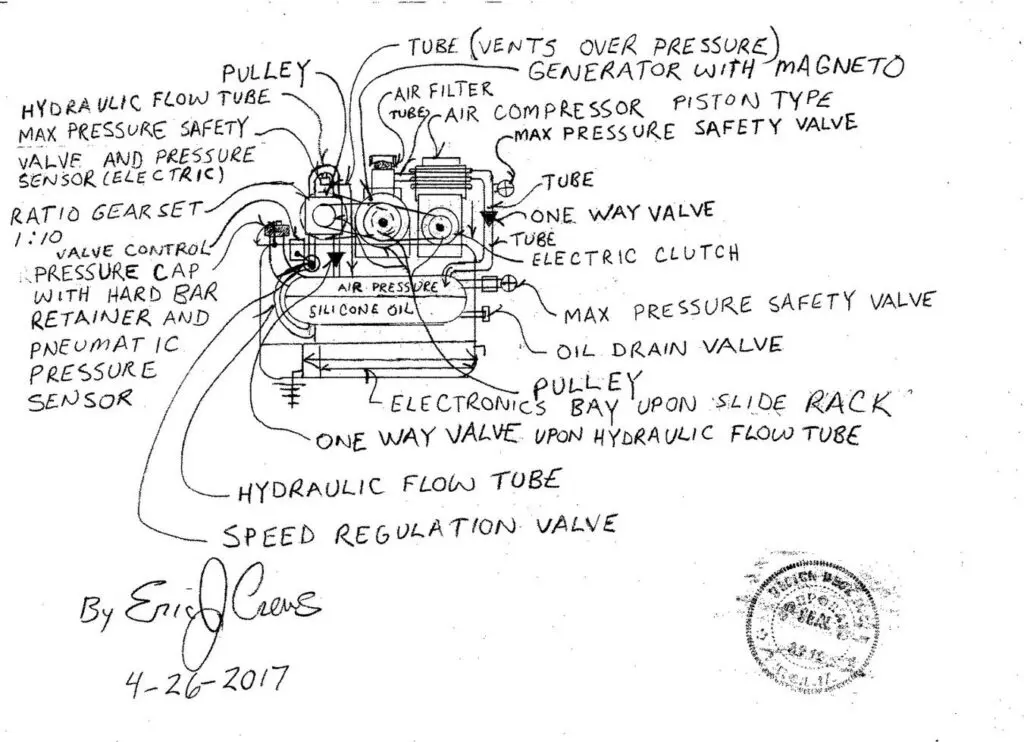 TUBE (VENTS OVER PRESSURE)
PULLEY
GENERATOR WITH MAGNETO
HYDRAULIC FLOW TUBE
AIR FILTER
TUBE
AIR COMPRESSOR PISTON TYPE
MAX PRESSURE SAFETY
VALVE AND PRESSURE
SENSOR (ELECTRIC)
MAX PRESSURE SAFETY VALVE
TUBE
RATIO GEAR SET
1:10
ONE WAY VALVE
TUBE
ELECTRIC CLUTCH
VALVE CONTROL
PRESSURE CAP
WITH HARD BAR
RETAINER AND
PNEUMATIC
PRESSURE
SENSOR
AIR PRESSURE
SILICONE OIL
MAX PRESSURE SAFETY VALVE
OIL DRAIN VALVE
PULLEY
ELECTRONICS BAY UPON SLIDE RACK
ONE WAY VALVE UPON HYDRAULIC FLOW TUBE
HYDRAULIC FLOW TUBE
SPEED REGULATION VALVE
By Eric J Crews
4-26-2017
SEAL